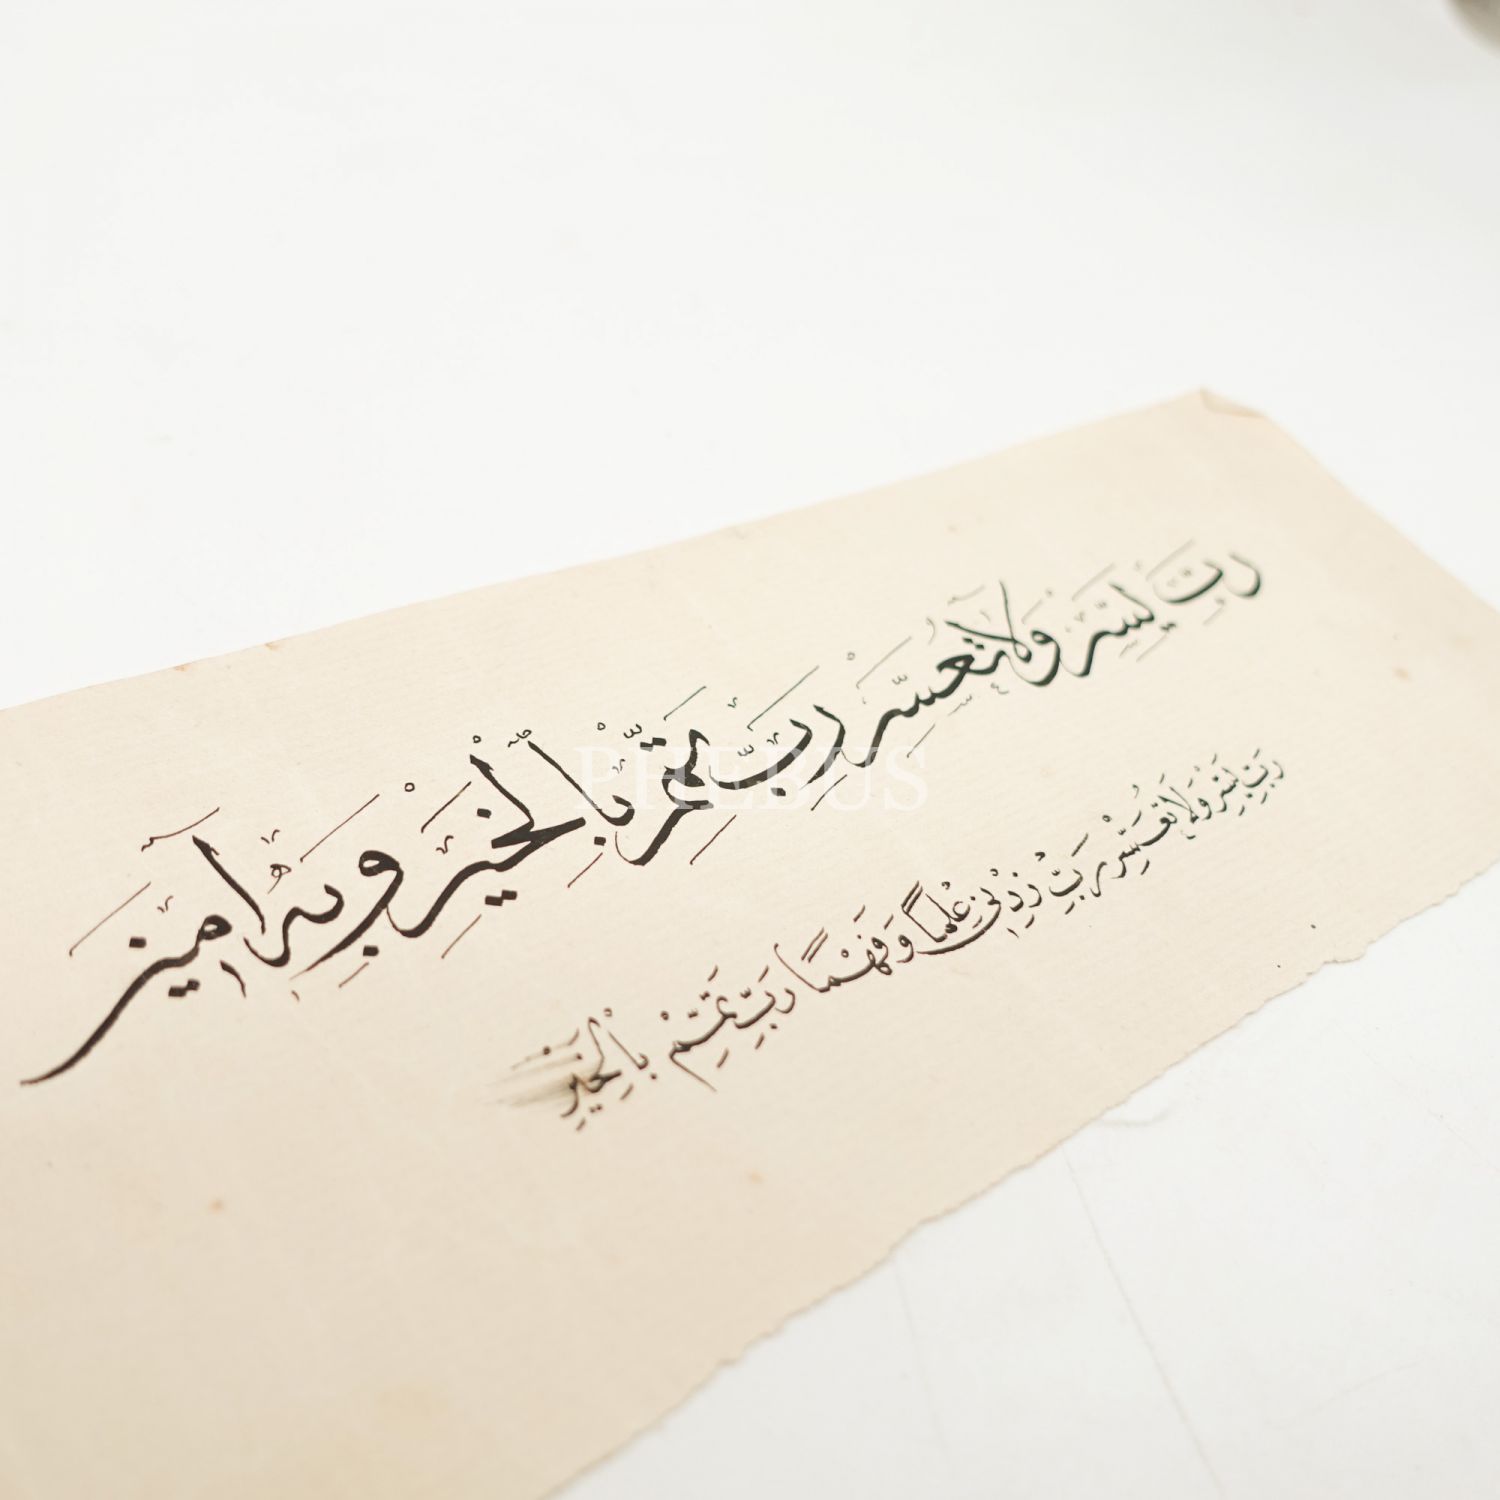 رب يسر ولا تعسر رب تمم بالخير وبه آمين
رَبِّ يَسِّرْ وَلَا تُعَسِّرْ رَبِّ زِدْنِي عِلْمًا وَفَهْمًا رَبِّ تَمِّمْ بِالْخَيْرِ
PHEBUS